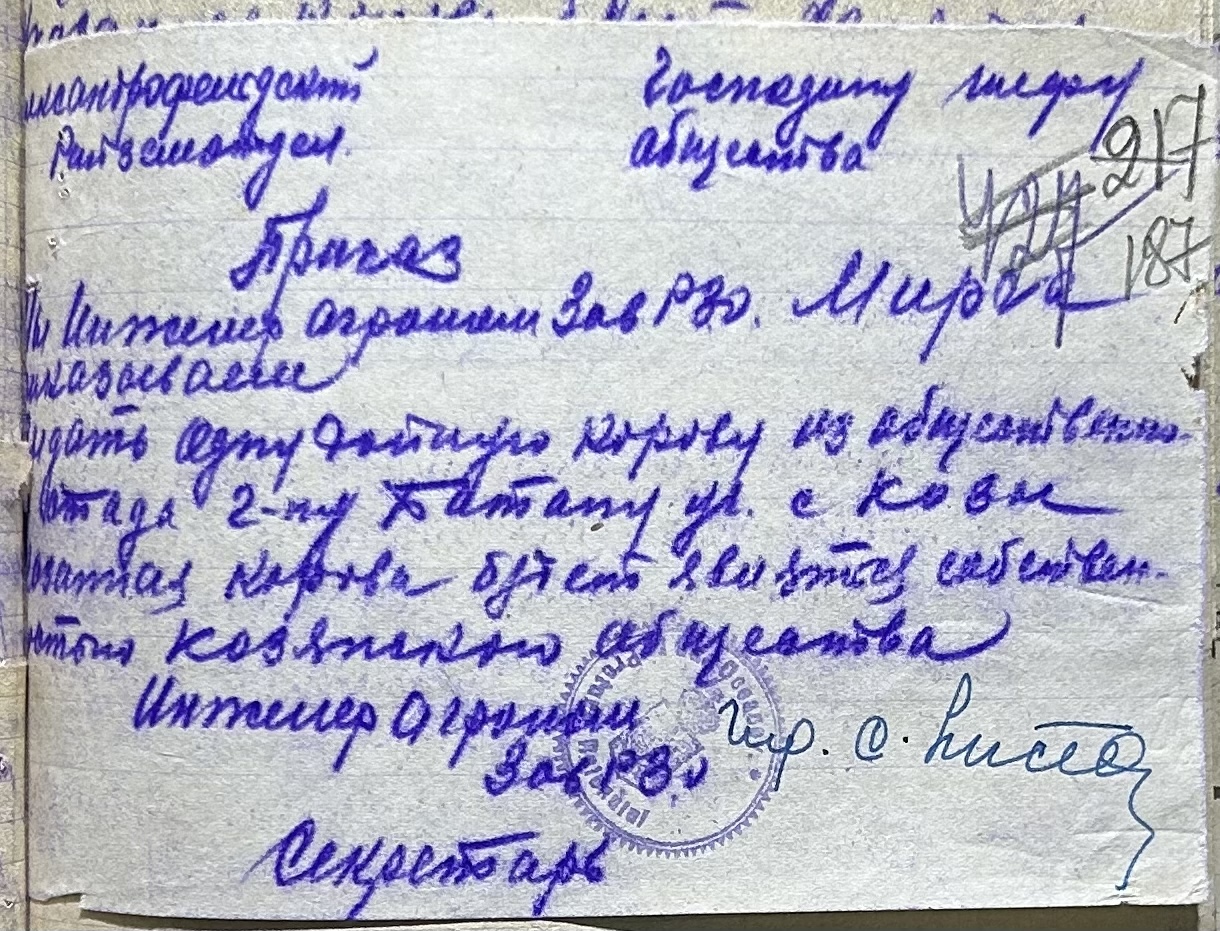 лександрофельдский
Райземотдел.
Господину шефу
общества
217
424
187
Приказ
Мы Инженер агроном Зав РЗо. Мирга
иказываем
идать одну дойную корову из общественно-
стада 2-ну Батану ул. с Ковы
казанная корова будет являтся собствен-
остью Козянского общества
Инженер Агроном
Зав РЗо
Секретарь